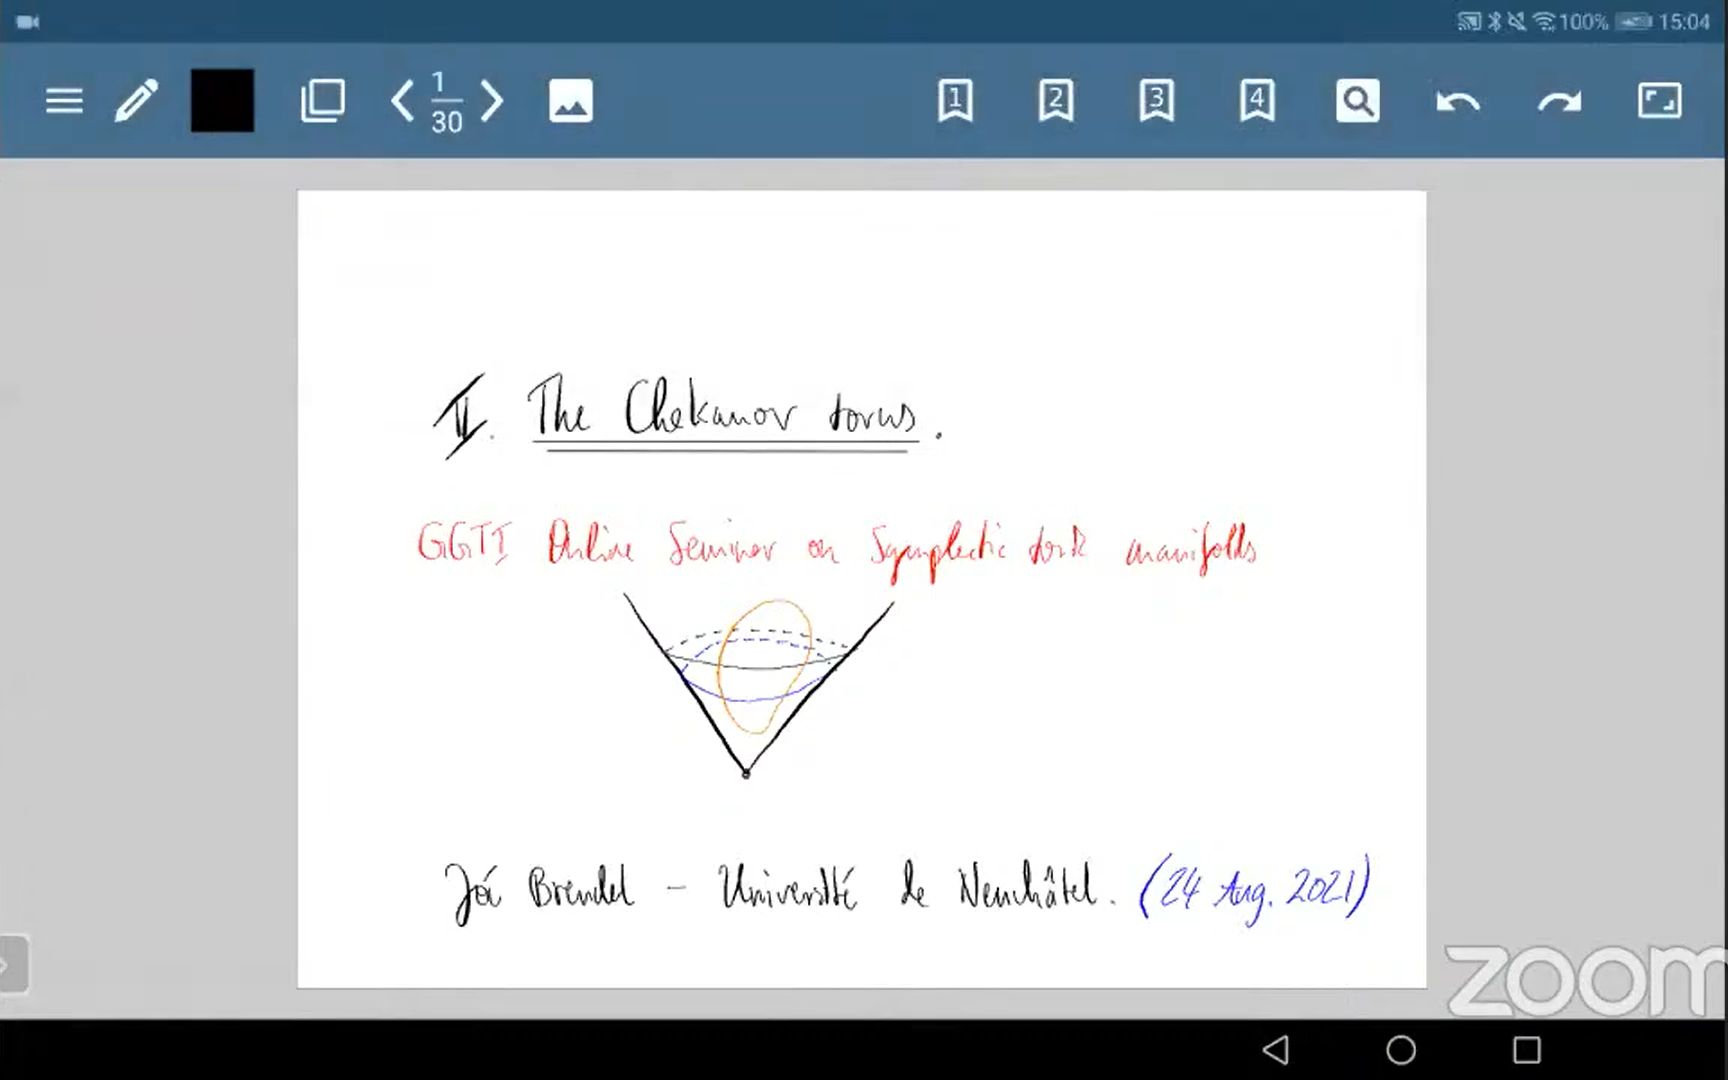 100% 15:04
1
30
1 2 3 4
II. The Chekanov torus.
GGTI Online Seminar on Symplectic toric manifolds
Joé Brendel - Université de Neuchâtel. (24 Aug. 2021)
zoom